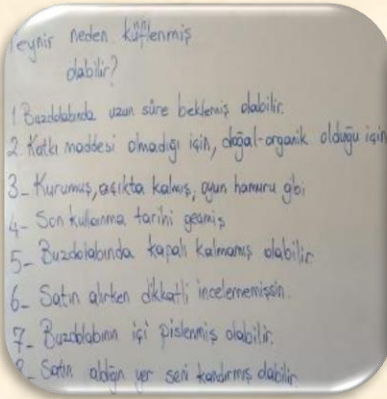 Peynir neden küflenmiş
olabilir?
1 Buzdolabında uzun süre beklemiş olabilir.
2. Katkı maddesi olmadığı için, doğal-organik olduğu için
3- Kurumuş, açıkta kalmış, oyun hamuru gibi
4- Son kullanma tarihi geçmiş
5- Buzdolabında kapalı kalmamış olabilir
6- Satın alırken dikkatli incelememişsin.
7- Buzdolabının içi pislenmiş olabilir.
8- Satın aldığın yer seni kandırmış olabilir.